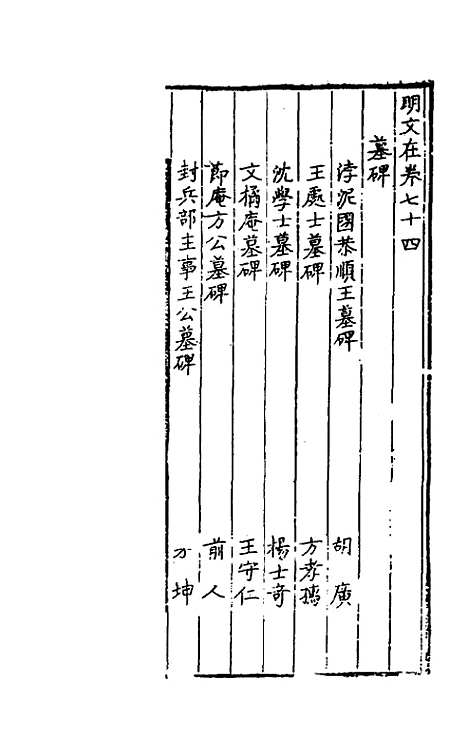 明文在卷七十四
墓碑
浡泥國恭順王墓碑 胡廣
王處士墓碑 方孝孺
沈學士墓碑 楊士奇
文橘庵墓碑 王守仁
節庵方公墓碑 前人
封兵部主事王公墓碑 坤